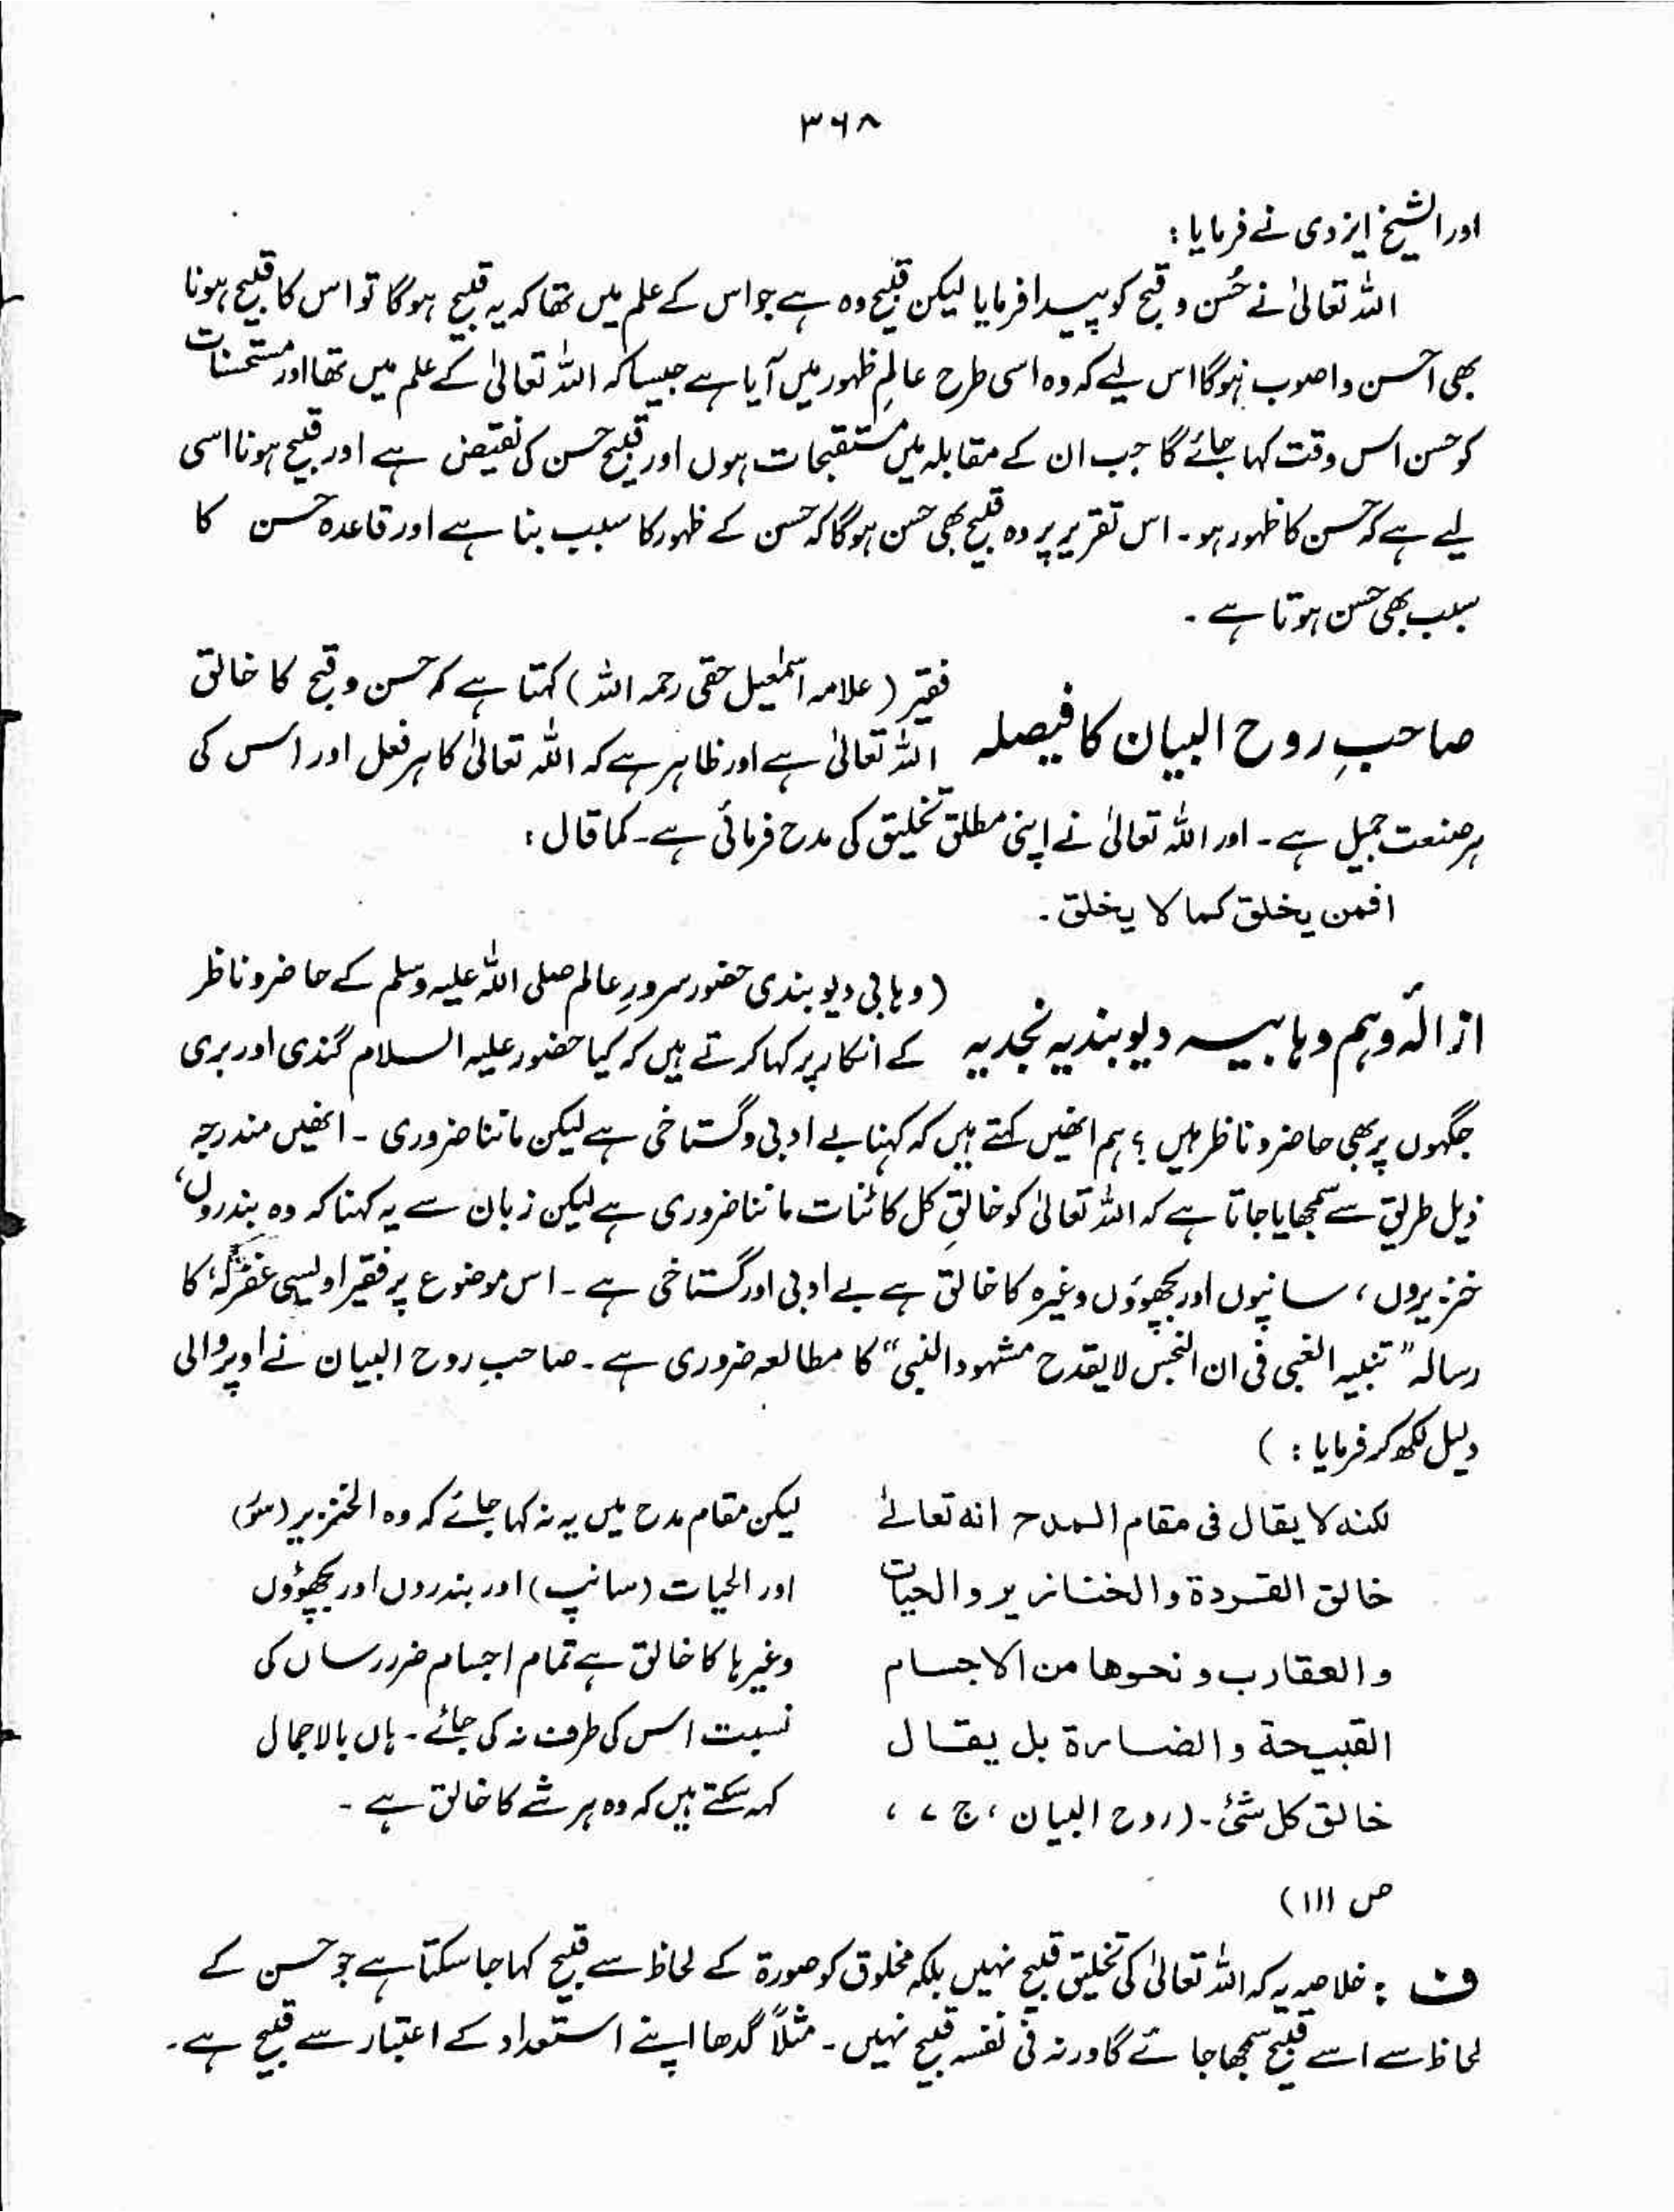 ۳۶۸
اور الشیخ ایزدی نے فرمایا :
اللہ تعالیٰ نے حُسن و قبح کو پیدا فرمایا لیکن قبیح وہ ہے جو اس کے علم میں تھا کہ یہ قبیح ہوگا تو اس کا قبیح ہونا
بھی احسن و اصوب ہوگا اس لیے کہ وہ اسی طرح عالمِ ظہور میں آیا ہے جیسا کہ اللہ تعالیٰ کے علم میں تھا اور مستحسنات
کو حسن اس وقت کہا جائے گا جب ان کے مقابلہ میں مستقبحات ہوں اور قبیح حسن کی نقیض ہے اور قبیح ہونا اسی
لیے ہے کہ حسن کا ظہور ہو۔ اس تقریر پر وہ قبیح بھی حسن ہوگا کہ حسن کے ظہور کا سبب بنا ہے اور قاعدہ حسن کا
سبب بھی حسن ہوتا ہے ۔
صاحبِ روح البیان کا فیصلہ
فقیر ( علامہ اسمٰعیل حقی رحمہ اللہ ) کہتا ہے کہ حسن و قبح کا خالق
اللہ تعالیٰ ہے اور ظاہر ہے کہ اللہ تعالیٰ کا ہر فعل اور اس کی
ہر صنعت جمیل ہے ۔ اور اللہ تعالیٰ نے اپنی مطلق تخلیق کی مدح فرمائی ہے۔ کما قال :
افمن یخلق کما لا یخلق ۔
ازالۂ وہم وہابیہ دیوبندیہ نجدیہ
( وہابی دیوبندی حضور سرورِ عالم صلی اللہ علیہ وسلم کے حاضر و ناظر
کے انکار پر کہا کرتے ہیں کہ کیا حضور علیہ السلام گندی اور بری
جگہوں پر بھی حاضر و ناظر ہیں ؟ ہم انھیں کہتے ہیں کہ کہنا بے ادبی و گستاخی ہے لیکن ماننا ضروری ۔ انھیں مندرجہ
ذیل طریق سے سمجھایا جاتا ہے کہ اللہ تعالیٰ کو خالقِ کل کائنات ماننا ضروری ہے لیکن زبان سے یہ کہنا کہ وہ بندروں ،
خنزیروں ، سانپوں اور بچھوؤں وغیرہ کا خالق ہے بے ادبی اور گستاخی ہے ۔ اس موضوع پر فقیر اویسی غفرلہٗ کا
رسالہ " تنبیہ الغبی فی ان النجس لا یقدح مشہود النبی " کا مطالعہ ضروری ہے ۔ صاحبِ روح البیان نے اوپر والی
دلیل لکھ کر فرمایا : )
لکنہ لا یقال فی مقام المدح انہ تعالےٰ
خالق القردۃ والخنازیر والحیات
والعقارب و نحوھا من الاجسام
القبیحۃ والضارۃ بل یقال
خالق کل شئ ۔ ( روح البیان ، ج ۷ ،
ص ۱۱۱ )
لیکن مقام مدح میں یہ نہ کہا جائے کہ وہ الخنزیر (سؤر)
اور الحیات ( سانپ ) اور بندروں اور بچھوؤں
وغیرہا کا خالق ہے تمام اجسام ضرر رساں کی
نسبت اس کی طرف نہ کی جائے ۔ ہاں بالاجمال
کہہ سکتے ہیں کہ وہ ہر شے کا خالق ہے ۔
ف : خلاصہ یہ کہ اللہ تعالیٰ کی تخلیق قبیح نہیں بلکہ مخلوق کو صورۃ کے لحاظ سے قبیح کہا جا سکتا ہے جو حسن کے
لحاظ سے اسے قبیح سمجھا جائے گا ورنہ فی نفسہ قبیح نہیں ۔ مثلاً گدھا اپنے استعداد کے اعتبار سے قبیح ہے ۔